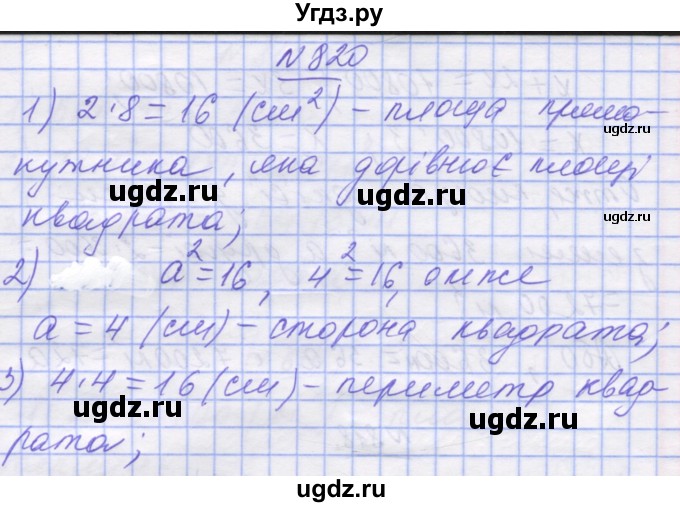 Угдз.ру
№820
1) 2·8=16 (см²) – площа прямо-
угдз.ру
кутника, яка дорівнює площі
ugdz.ru ugdz.ru
квадрата;
2) a²=16, 4²=16, отже
ugdz.ru ugdz.ru
a = 4 (см) – сторона квадрата;
3) 4·4=16 (см) – периметр квад-
ugdz.ru ugdz.ru
рата;
ugdz.ru